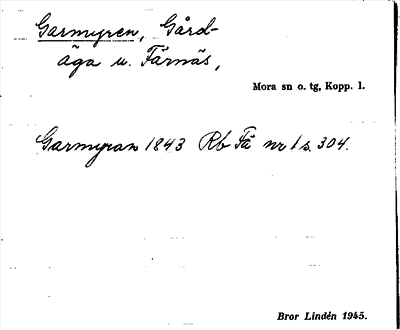 Garmyren, Gård-
äga u. Färnäs,
Mora sn o. tg, Kopp. l.
Garmyran 1843 Rb Få nr 1 s. 304.
Bror Lindén 1945.